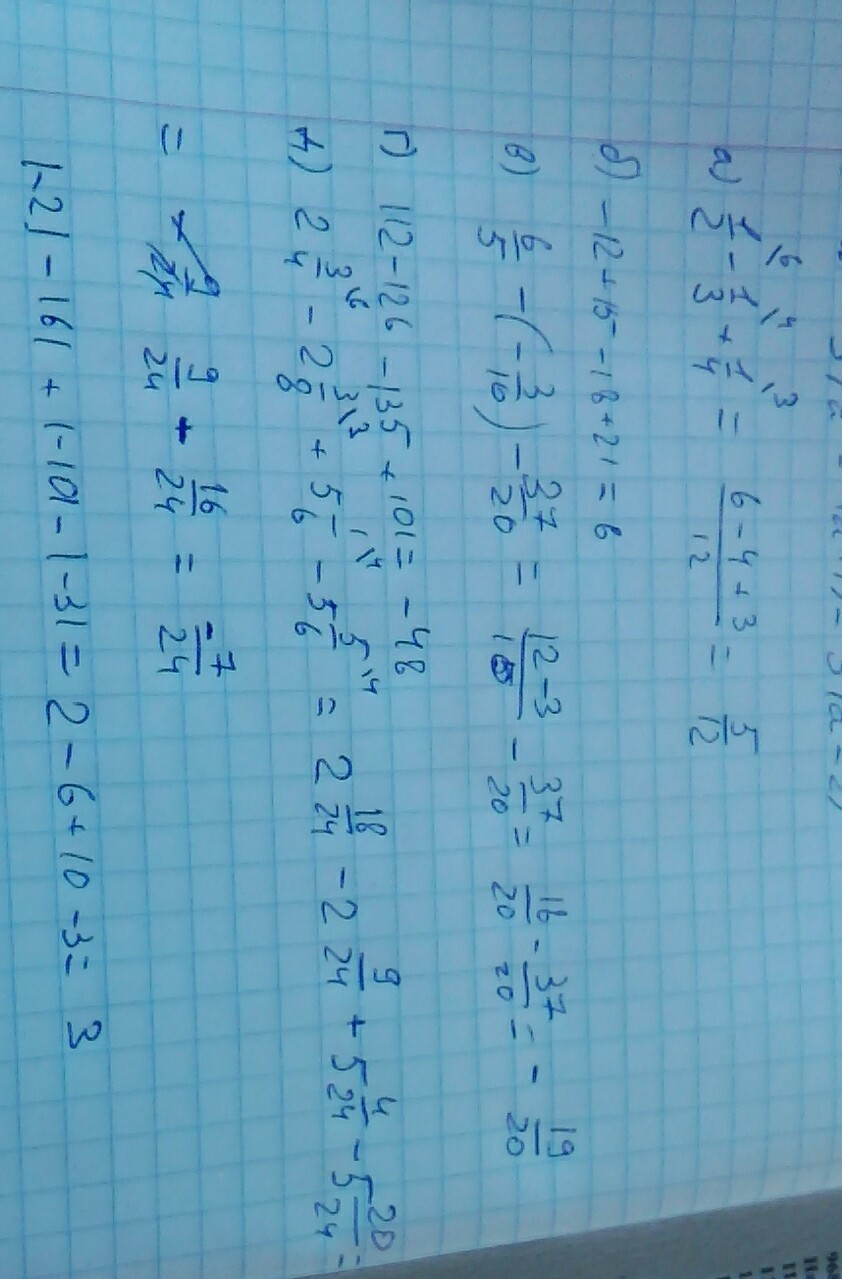 а) 1/2\6 - 1/3\4 + 1/4\3 = (6 - 4 + 3)/12 = 5/12
б) -12 + 15 - 18 + 21 = 6
в) 6/5 - (-3/10) - 37/20 = (12 - 3)/10 - 37/20 = 18/20 - 37/20 = - 19/20
г) 112 - 126 - 135 + 101 = - 48
д) 2 3/4\6 - 2 3/8\3 + 5 1/6\4 - 5 5/6\4 = 2 18/24 - 2 9/24 + 5 4/24 - 5 20/24 =
= 9/24 - 16/24 = -7/24
|-2| - |6| + |-10| - |-3| = 2 - 6 + 10 - 3 = 3